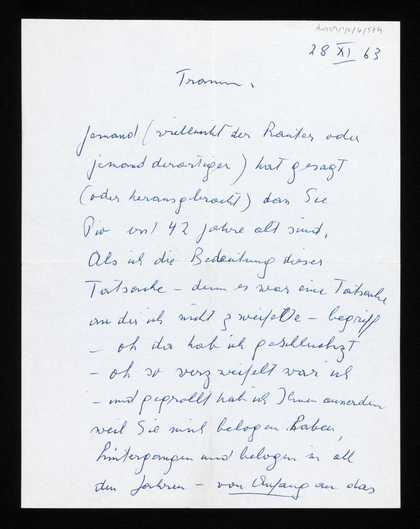 28 XI 63
Traum.
Jemand (vielleicht der Kantor oder
jemand derartiger) hat gesagt
(oder herausgebracht) dass Sie
erst 42 Jahre alt sind,
Als ich die Bedeutung dieser
Tatsache – denn es war eine Tatsache
an der ich nicht zweifelte – begriff
– oh da hab ich geschluchzt
– oh so verzweifelt war ich
– und gegrollt hab ich Ihnen ausserdem
weil Sie mich belogen haben,
hintergangen und belogen in all
den Jahren – von Anfang an das